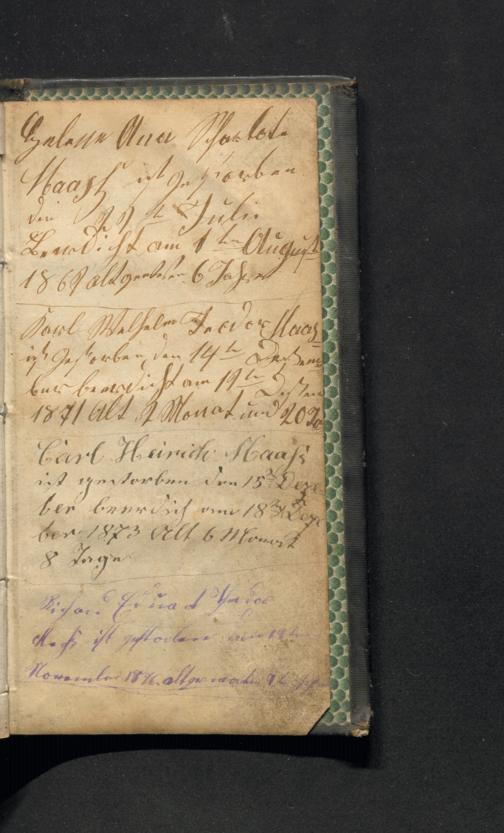 Helene Anna Scharlote
Haaß ist gestorben
den 29 ten Julie
Beerdicht am 1 ten August
1869 alt gewesen 6 Jahre
Karl Wilhelm Teodor Haaß
ist gestorben den 14 te Dezem
ber beerdicht am 19 te Dezem
1871 Alt 2 Monat und 20 Ta
Carl Heinrich Haaß
ist gestorben den 15 t Deze
ber beerdich am 18 t Deze
ber 1873 Alt 6 Monat
8 Tage
Eduard
Haaß ist gestorben
November